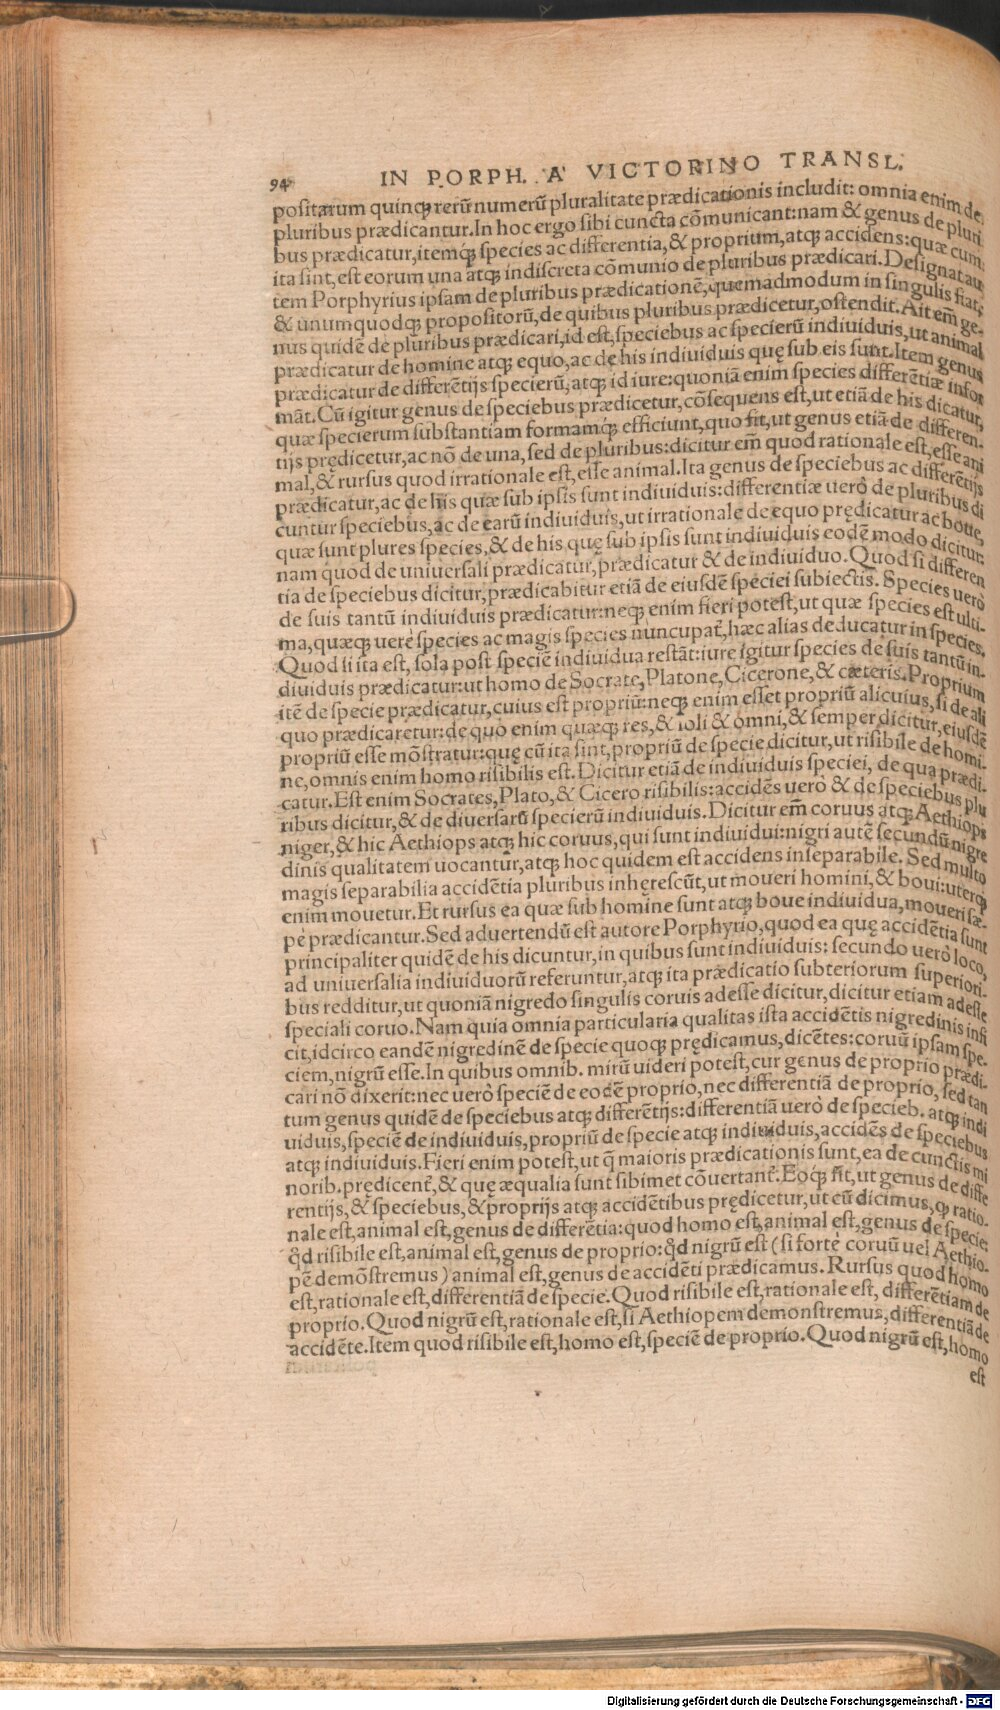 94 IN PORPH. A' VICTORINO TRANSL.
positarum quinq; rerũ numerũ pluralitate prædicationis includit: omnia enim de
pluribus prædicantur. In hoc ergo sibi cuncta cõmunicant: nam & genus de pluri
bus prædicatur, itemq́; species ac differentia, & proprium, atq; accidens: quæ cum
ita sint, est eorum una atq; indiscreta cõmunio de pluribus prædicari. Designat au
tem Porphyrius ipsam de pluribus prædicationẽ, quemadmodum in singulis fiat,
& unumquodq; propositorũ, de quibus pluribus prædicetur, ostendit. Ait em̃ ge-
nus quidẽ de pluribus prædicari, id est, speciebus ac specierũ indiuiduis, ut animal
prædicatur de homine atq; equo, ac de his indiuiduis quę sub eis sunt. Item genus
prædicatur de differẽtijs specierũ, atq; id iure: quoniã enim species differẽtiæ infor
mãt. Cũ igitur genus de speciebus prædicetur, cõsequens est, ut etiã de his dicatur,
quæ specierum substantiam formamq; efficiunt, quo fit, ut genus etiã de differen-
tijs prędicetur, ac nõ de una, sed de pluribus: dicitur em̃ quod rationale est, esse ani
mal, & rursus quod irrationale est, esse animal. Ita genus de speciebus ac differẽtijs
prædicatur, ac de his quæ sub ipsis sunt indiuiduis: differentiæ uerò de pluribus di
cuntur speciebus, ac de earũ indiuiduis, ut irrationale de equo prędicatur ac boue,
quæ sunt plures species, & de his quę sub ipsis sunt indiuiduis eodẽ modo dicitur:
nam quod de uniuersali prædicatur, prædicatur & de indiuiduo. Quod si differen
tia de speciebus dicitur, prædicabitur etiã de eiusdẽ speciei subiectis. Species uerò
de suis tantũ indiuiduis prædicatur: neq; enim fieri potest, ut quæ species est ulti-
ma, quæq; uerè species ac magis species nuncupat̃, hæc alias deducatur in species.
Quod si ita est, sola post speciẽ indiuidua restãt: iure igitur species de suis tantũ in-
diuiduis prædicatur: ut homo de Socrate, Platone, Cicerone, & cæteris. Proprium
itẽ de specie prædicatur, cuius est propriũ: neq; enim esset propriũ alicuius, si de ali
quo prædicaretur: de quo enim quæq; res, & soli & omni, & semper dicitur, eiusdẽ
propriũ esse mõstratur: quę cũ ita sint, propriũ de specie dicitur, ut risibile de homi-
ne, omnis enim homo risibilis est. Dicitur etiã de indiuiduis speciei, de qua prædi-
catur. Est enim Socrates, Plato, & Cicero risibilis: accidẽs uerò & de speciebus plu
ribus dicitur, & de diuersarũ specierũ indiuiduis. Dicitur em̃ coruus atq; Aethiops
niger, & hic Aethiops atq; hic coruus, qui sunt indiuidui: nigri autẽ secundũ nigre
dinis qualitatem uocantur, atq; hoc quidem est accidens inseparabile. Sed multo
magis separabilia accidẽtia pluribus inhęrescũt, ut moueri homini, & boui: uterq;
enim mouetur. Et rursus ea quæ sub homine sunt atq; boue indiuidua, moueri sæ-
pe prædicantur. Sed aduertendũ est autore Porphyrio, quod ea quę accidẽtia sunt
principaliter quidẽ de his dicuntur, in quibus sunt indiuiduis: secundo uerò loco,
ad uniuersalia indiuiduorũ referuntur, atq; ita prædicatio subteriorum superiori-
bus redditur, ut quoniã nigredo singulis coruis adesse dicitur, dicitur etiam adesse
speciali coruo. Nam quia omnia particularia qualitas ista accidẽtis nigredinis infi
cit, idcirco eandẽ nigredinẽ de specie quoq; prędicamus, dicẽtes: coruũ ipsam spe-
ciem, nigrũ esse. In quibus omnib. mirũ uideri potest, cur genus de proprio prædi-
cari nõ dixerit: nec uerò speciẽ de eodẽ proprio, nec differentiã de proprio, sed tan
tum genus quidẽ de speciebus atq; differẽtijs: differentiã uerò de specieb. atq; indi
uiduis, speciẽ de indiuiduis, propriũ de specie atq; indiuiduis, accidẽs de speciebus
atq; indiuiduis. Fieri enim potest, ut q̃ maioris prædicationis sunt, ea de cunctis mi
norib. prędicent̃, & quę æqualia sunt sibimet cõuertant̃. Eoq; fit, ut genus de diffe
rentijs, & speciebus, & proprijs atq; accidẽtibus prędicetur, ut cũ dicimus, ꝙ ratio-
nale est, animal est, genus de differẽtia: quod homo est, animal est, genus de specie:
q̃d risibile est, animal est, genus de proprio: q̃d nigrũ est (si fortè coruũ uel Aethio-
pẽ demõstremus) animal est, genus de accidẽti prædicamus. Rursus quod homo
est, rationale est, differentiã de specie. Quod risibile est, rationale est, differẽtiam de
proprio. Quod nigrũ est, rationale est, si Aethiopem demonstremus, differentiã de
accidẽte. Item quod risibile est, homo est, speciẽ de proprio. Quod nigrũ est, homo
est
Digitalisierung gefördert durch die Deutsche Forschungsgemeinschaft - DFG